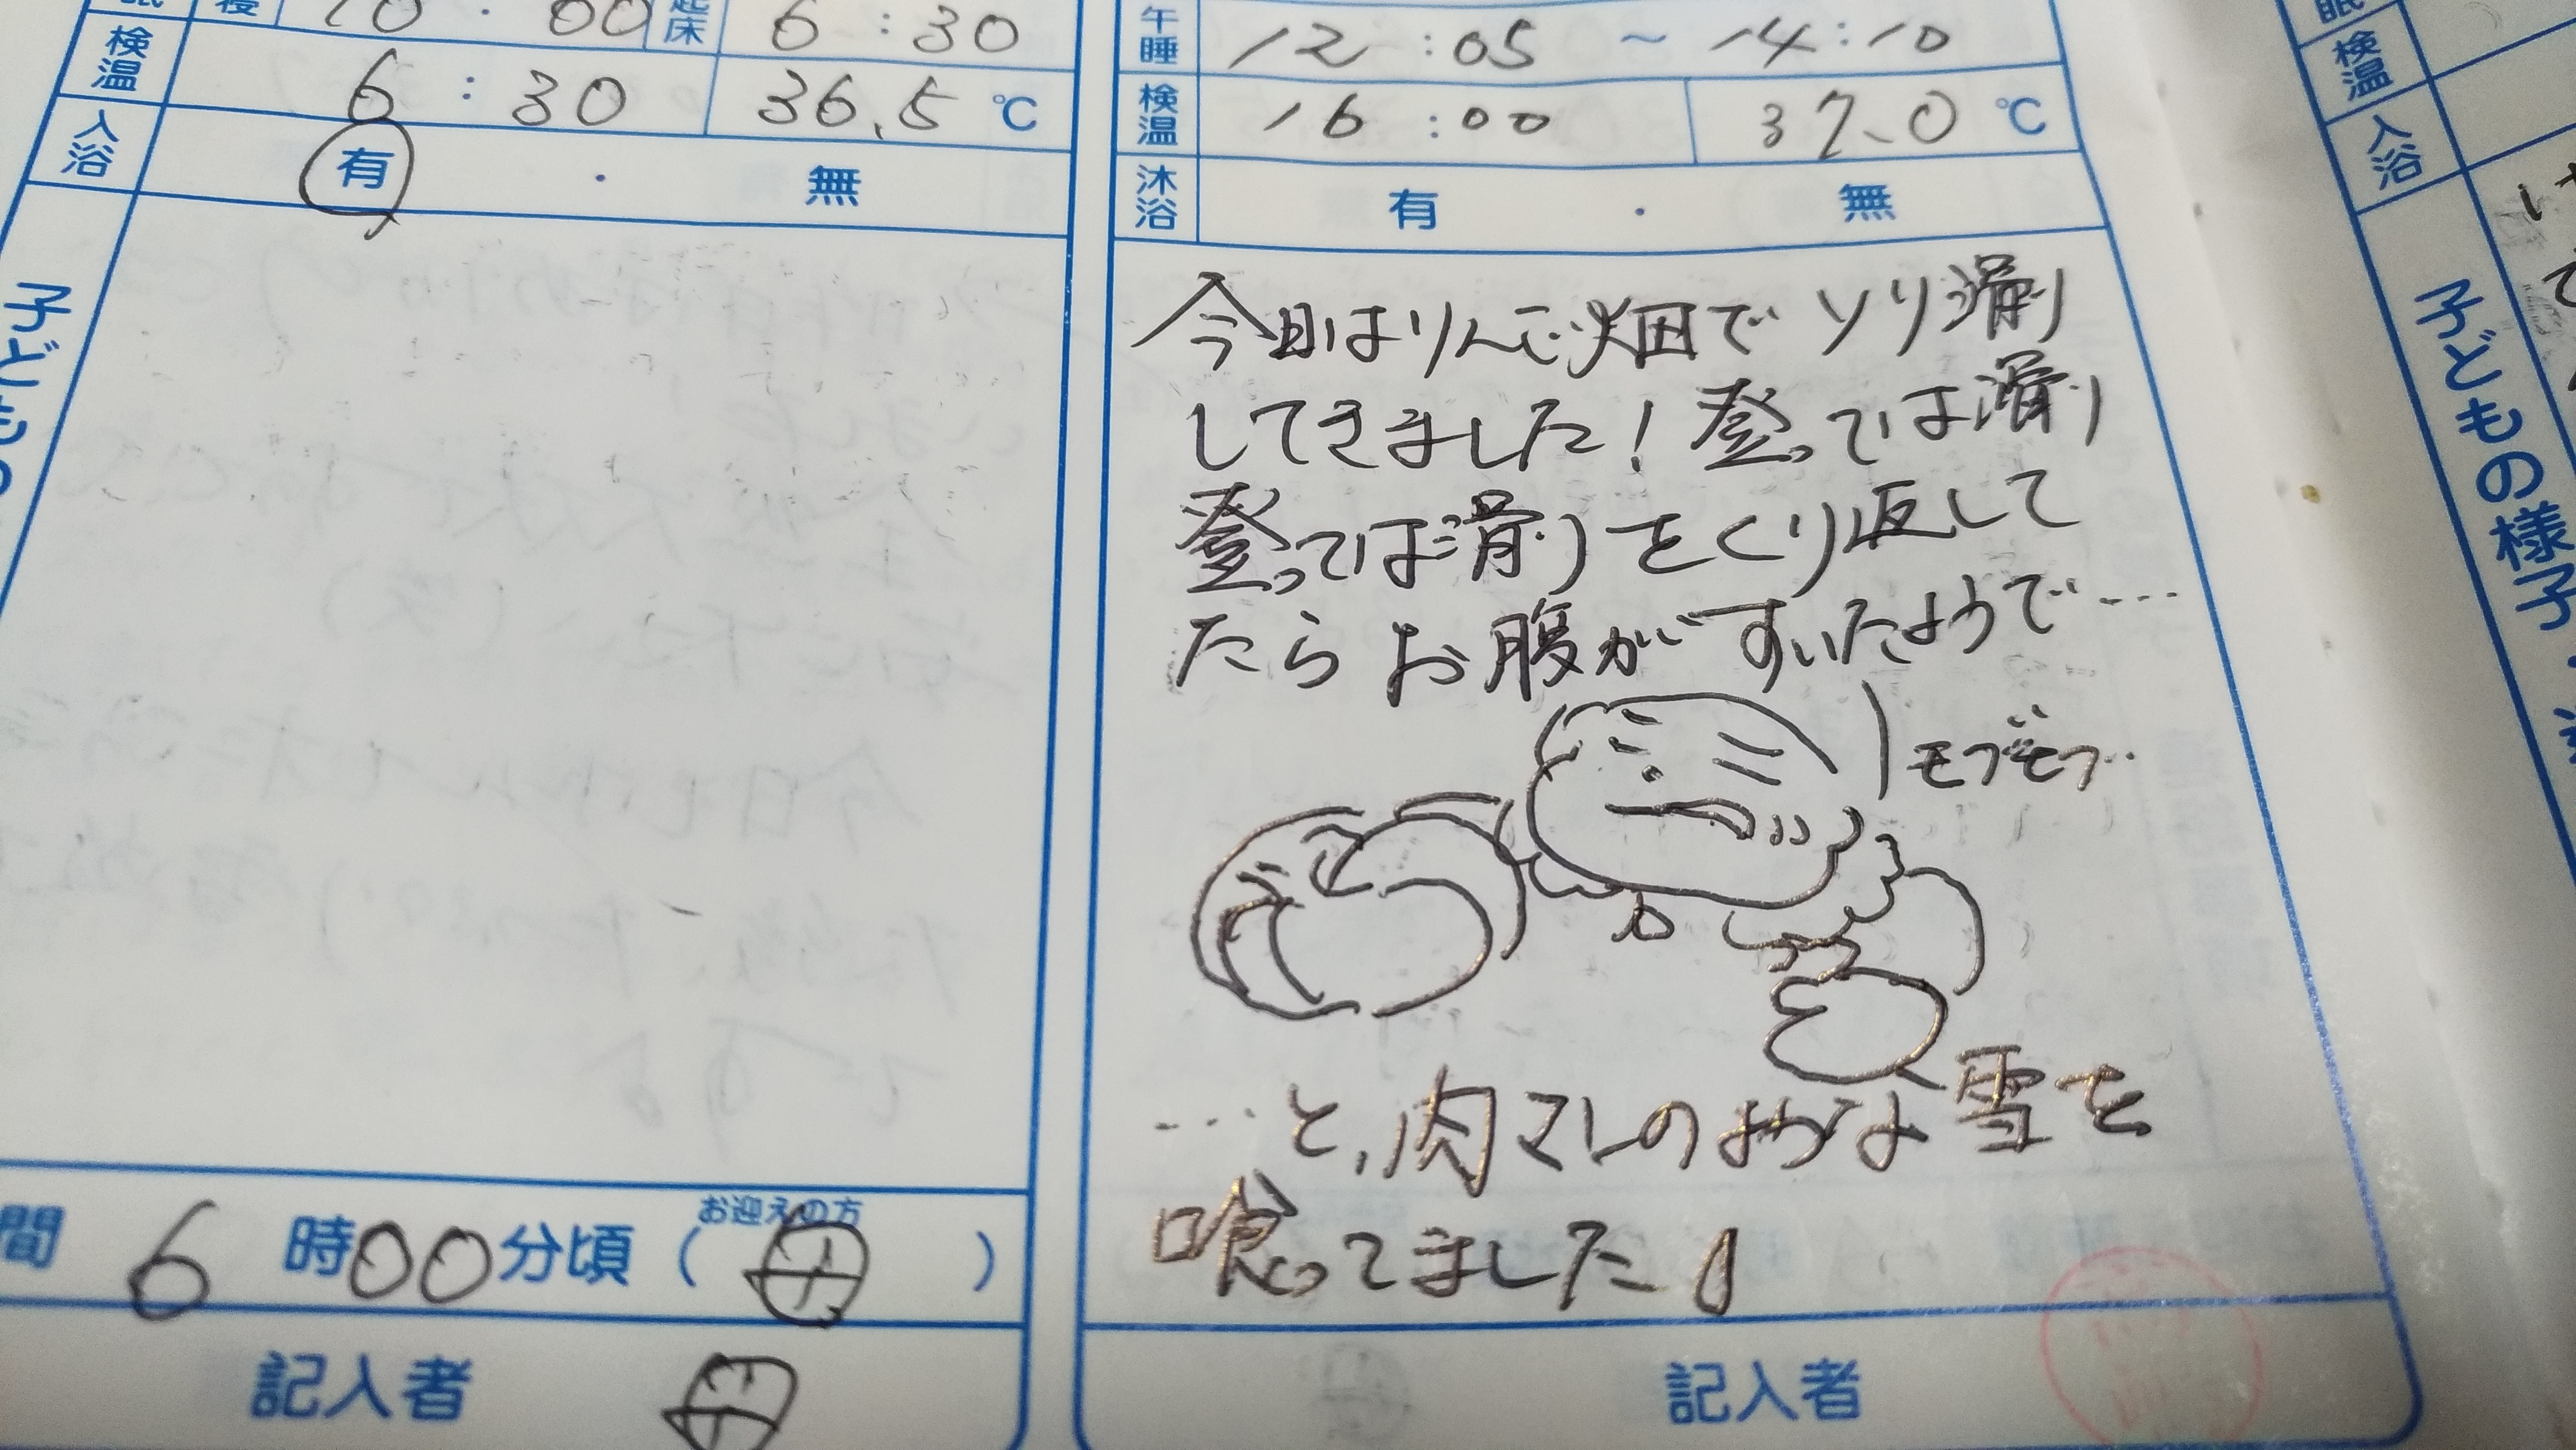 10:00 起床 6:30
検温 6:30 36.5 ℃
入浴 有 ・ 無
子ども
間 6時00分頃(母)
お迎えの方
記入者 母
午睡 12:05 ~ 14:10
検温 16:00 37.0 ℃
沐浴 有 ・ 無
今日はりんご畑でソリ滑り
してきました!登っては滑り
登っては滑りをくり返して
たらお腹がすいたようで…
モグモグ…
…と、肉マンのような雪を
喰ってました!
記入者
検温
入浴
子どもの様子・